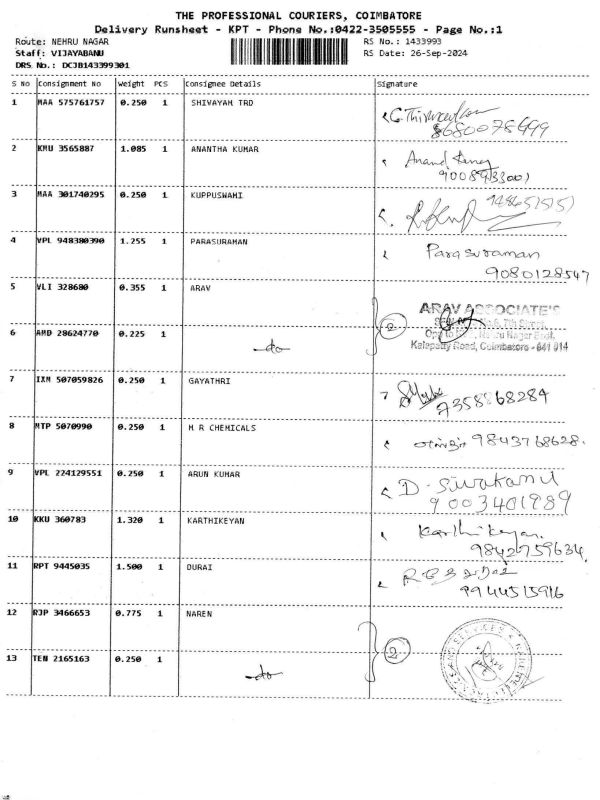 THE PROFESSIONAL COURIERS, COIMBATORE
Delivery Runsheet - KPT - Phone No.:0422-3505555 - Page No.:1
Route: NEHRU NAGAR RS No.: 1433993
Staff: VIJAYABANU RS Date: 26-Sep-2024
DRS No.: DCJB143399301
S No Consignment No Weight PCS Consignee Details Signature
1 MAA 575761757 0.250 1 SHIVAYAM TRD
8680078499
2 KMU 3565887 1.085 1 ANANTHA KUMAR Anand
3 MAA 301740295 0.250 1 KUPPUSWAMI
4 VPL 948380390 1.255 1 PARASURAMAN Parasuraman
9080128547
5 VLI 328680 0.355 1 ARAV 2 ARAV ASSOCIATE'S
6 AMD 28624770 0.225 1 -do
Kalapatty Road, Coimbatore - 641 014
7 IXM 507059826 0.250 1 GAYATHRI
7358868284
8 MTP 5070990 0.250 1 M R CHEMICALS 9843768628.
9 VPL 224129551 0.250 1 ARUN KUMAR D. Sivakami
9003401989
10 KKU 360783 1.320 1 KARTHIKEYAN Karthikeyan.
9842759634
11 RPT 9445035 1.500 1 DURAI
9944515916
12 RJP 3466653 0.775 1 NAREN 2
13 TEN 2165163 0.250 1 -do